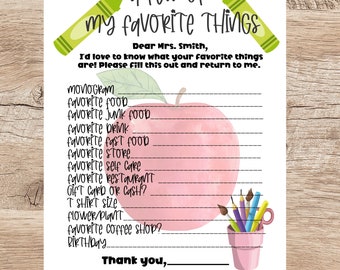 MY FAVORITE THINGS
Dear Mrs. Smith,
I'd love to know what your favorite things
are! Please fill this out and return to me.
MONOGRAM
FAVORITE FOOD
FAVORITE JUNK FOOD
FAVORITE DRINK
FAVORITE FAST FOOD
FAVORITE STORE
FAVORITE SELF CARE
FAVORITE RESTAURANT
GIFT CARD OR CASH?
T SHIRT SIZE
FLOWER/PLANT
FAVORITE COFFEE SHOP?
BIRTHDAY
Thank you,